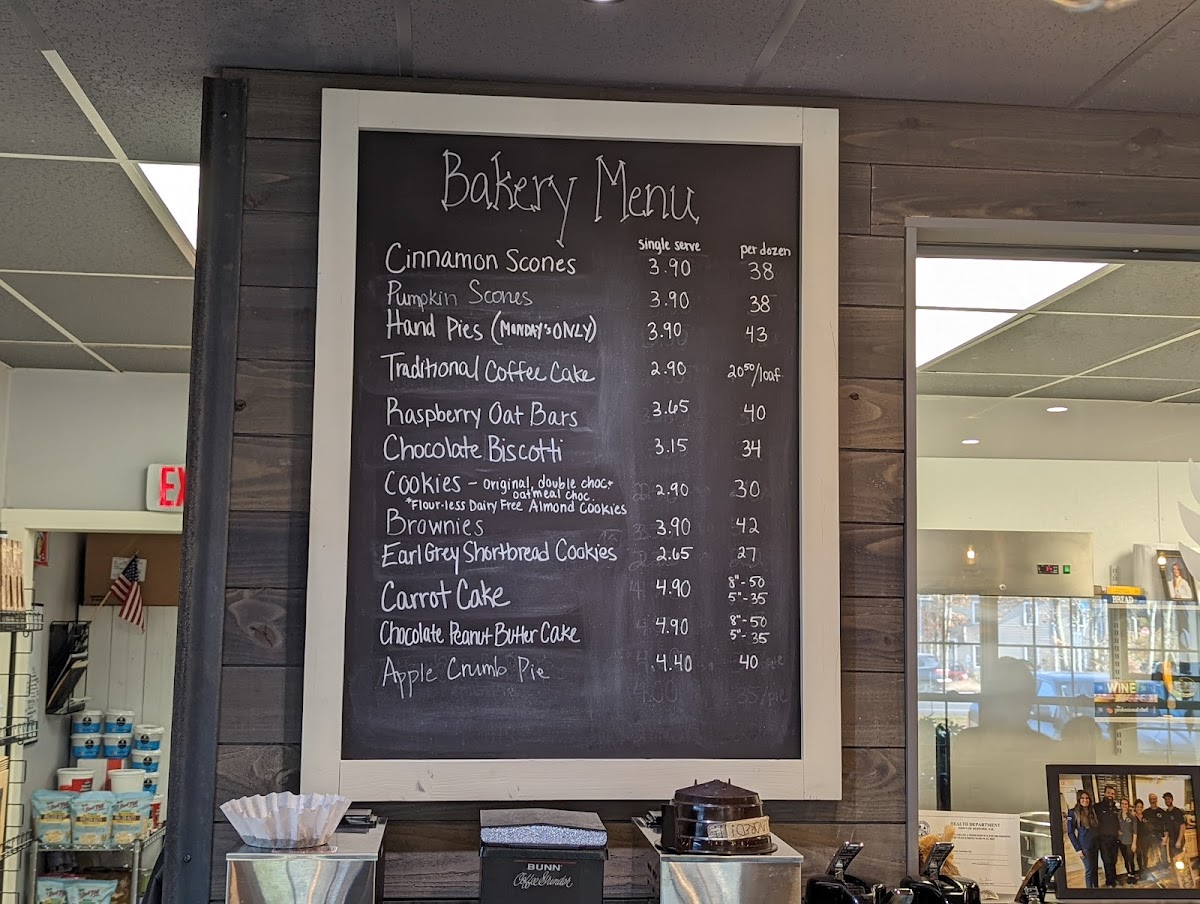 Bakery Menu
single serve per dozen
Cinnamon Scones 3.90 38
Pumpkin Scones 3.90 38
Hand Pies (MONDAY'S ONLY) 3.90 43
Traditional Coffee Cake 2.90 20⁵⁰/loaf
Raspberry Oat Bars 3.65 40
Chocolate Biscotti 3.15 34
Cookies - original, double choc, 2.90 30
oatmeal choc.
*Flour-less Dairy Free Almond Cookies
Brownies 3.90 42
Earl Grey Shortbread Cookies 2.65 27
Carrot Cake 4.90 8"-50
5"-35
Chocolate Peanut Butter Cake 4.90 8"-50
5"-35
Apple Crumb Pie 4.40 40
EX
BREAD
WINE
BUNN
Coffee Grinder
HEALTH DEPARTMENT